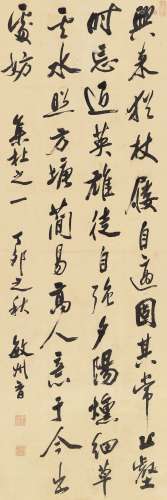 興来犹杖屨自適固其常丘壑
时忘返英雄徒自强夕陽燻细草
雲水照方塘簡易高人意于今出
處妨
集杜之一 丁卯之秋 敏州書